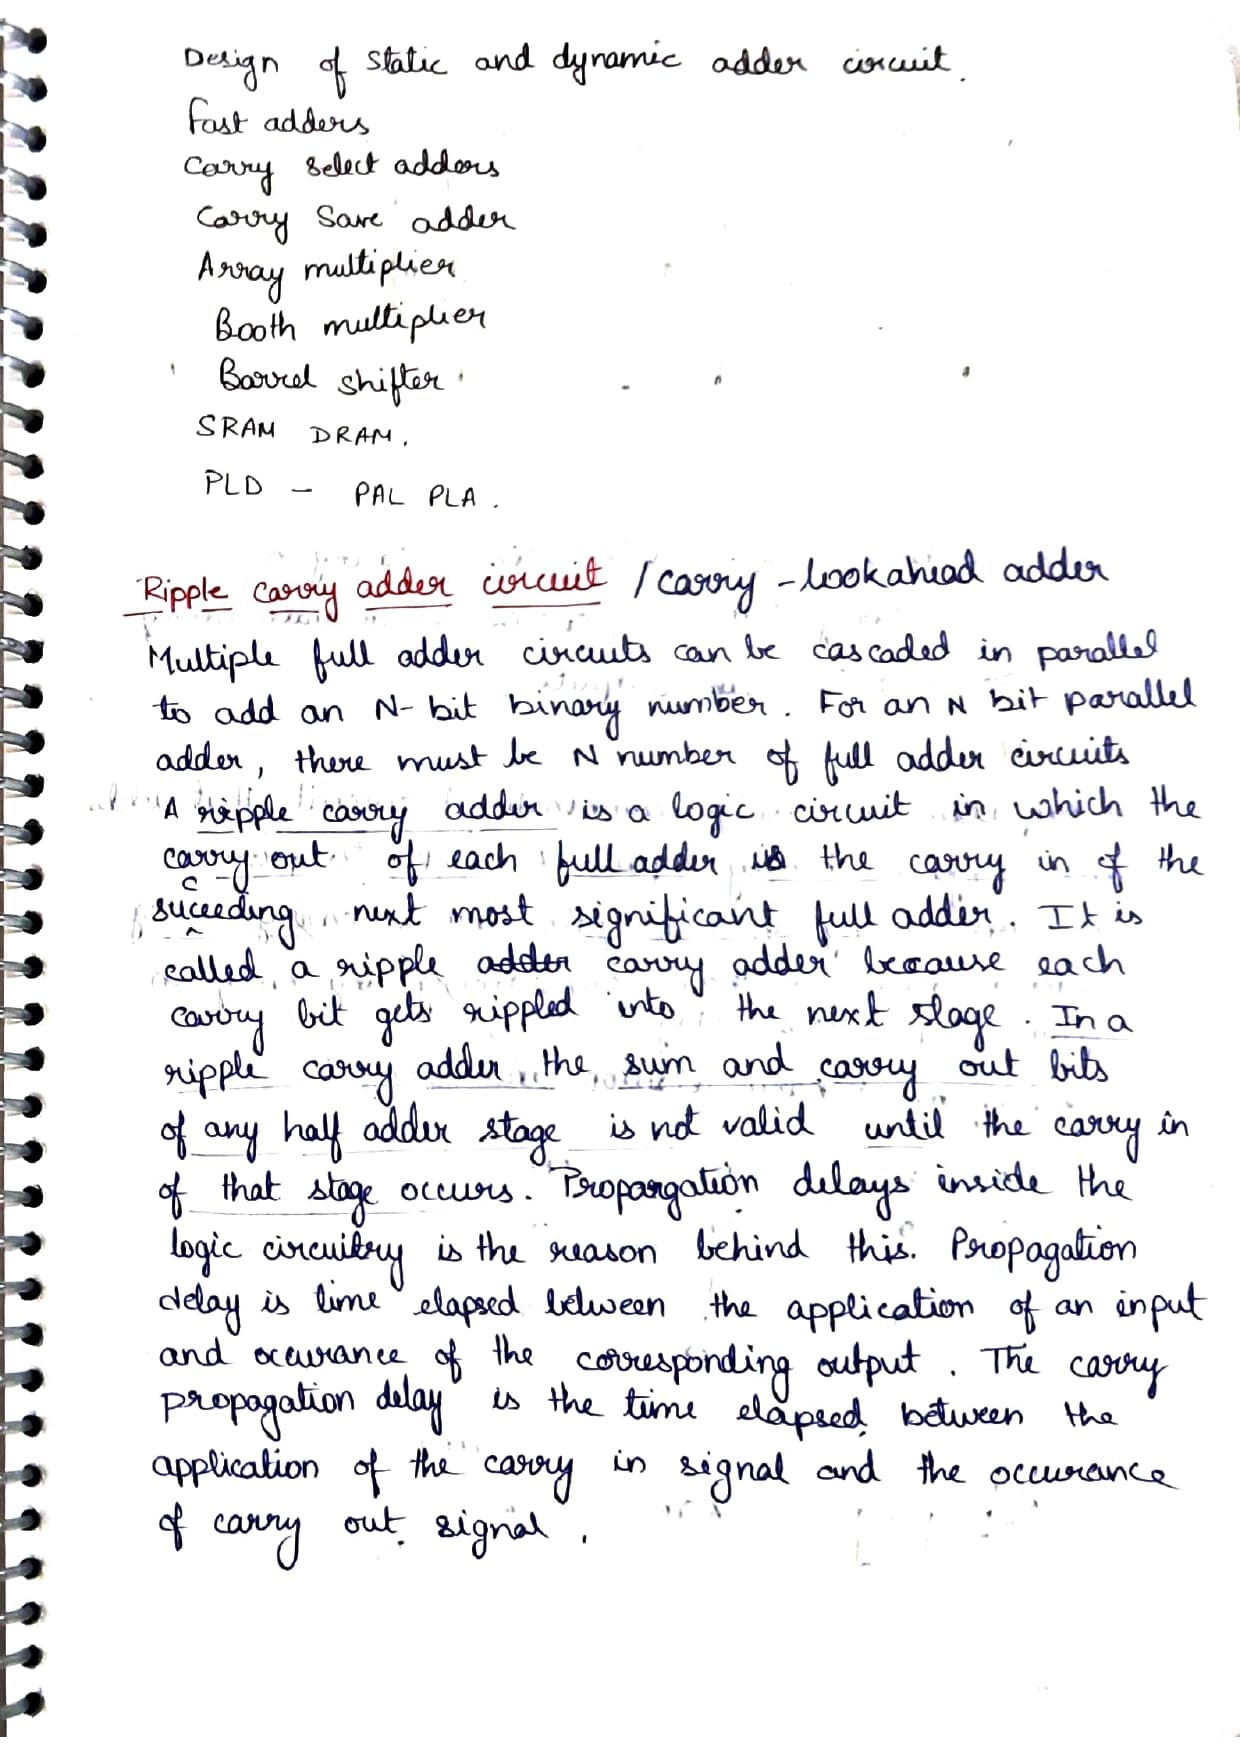 Design of static and dynamic adder circuit.
Fast adders
Carry select adders
Carry Save adder
Array multiplier
Booth multiplier
Barrel shifter
SRAM DRAM.
PLD - PAL PLA.
Ripple carry adder circuit / carry - lookahead adder
Multiple full adder circuits can be cascaded in parallel
to add an N-bit binary number. For an N bit parallel
adder, there must be N number of full adder circuits
A ripple carry adder is a logic circuit in which the
carry out of each full adder is the carry in of the
succeeding next most significant full adder. It is
called a ripple adder carry adder because each
carry bit gets rippled into the next stage. In a
ripple carry adder the sum and carry out bits
of any half adder stage is not valid until the carry in
of that stage occurs. Propargation delays inside the
logic circuitry is the reason behind this. Propagation
delay is time elapsed between the application of an input
and occurance of the corresponding output. The carry
propagation delay is the time elapsed between the
application of the carry in signal and the occurance
of carry out signal.